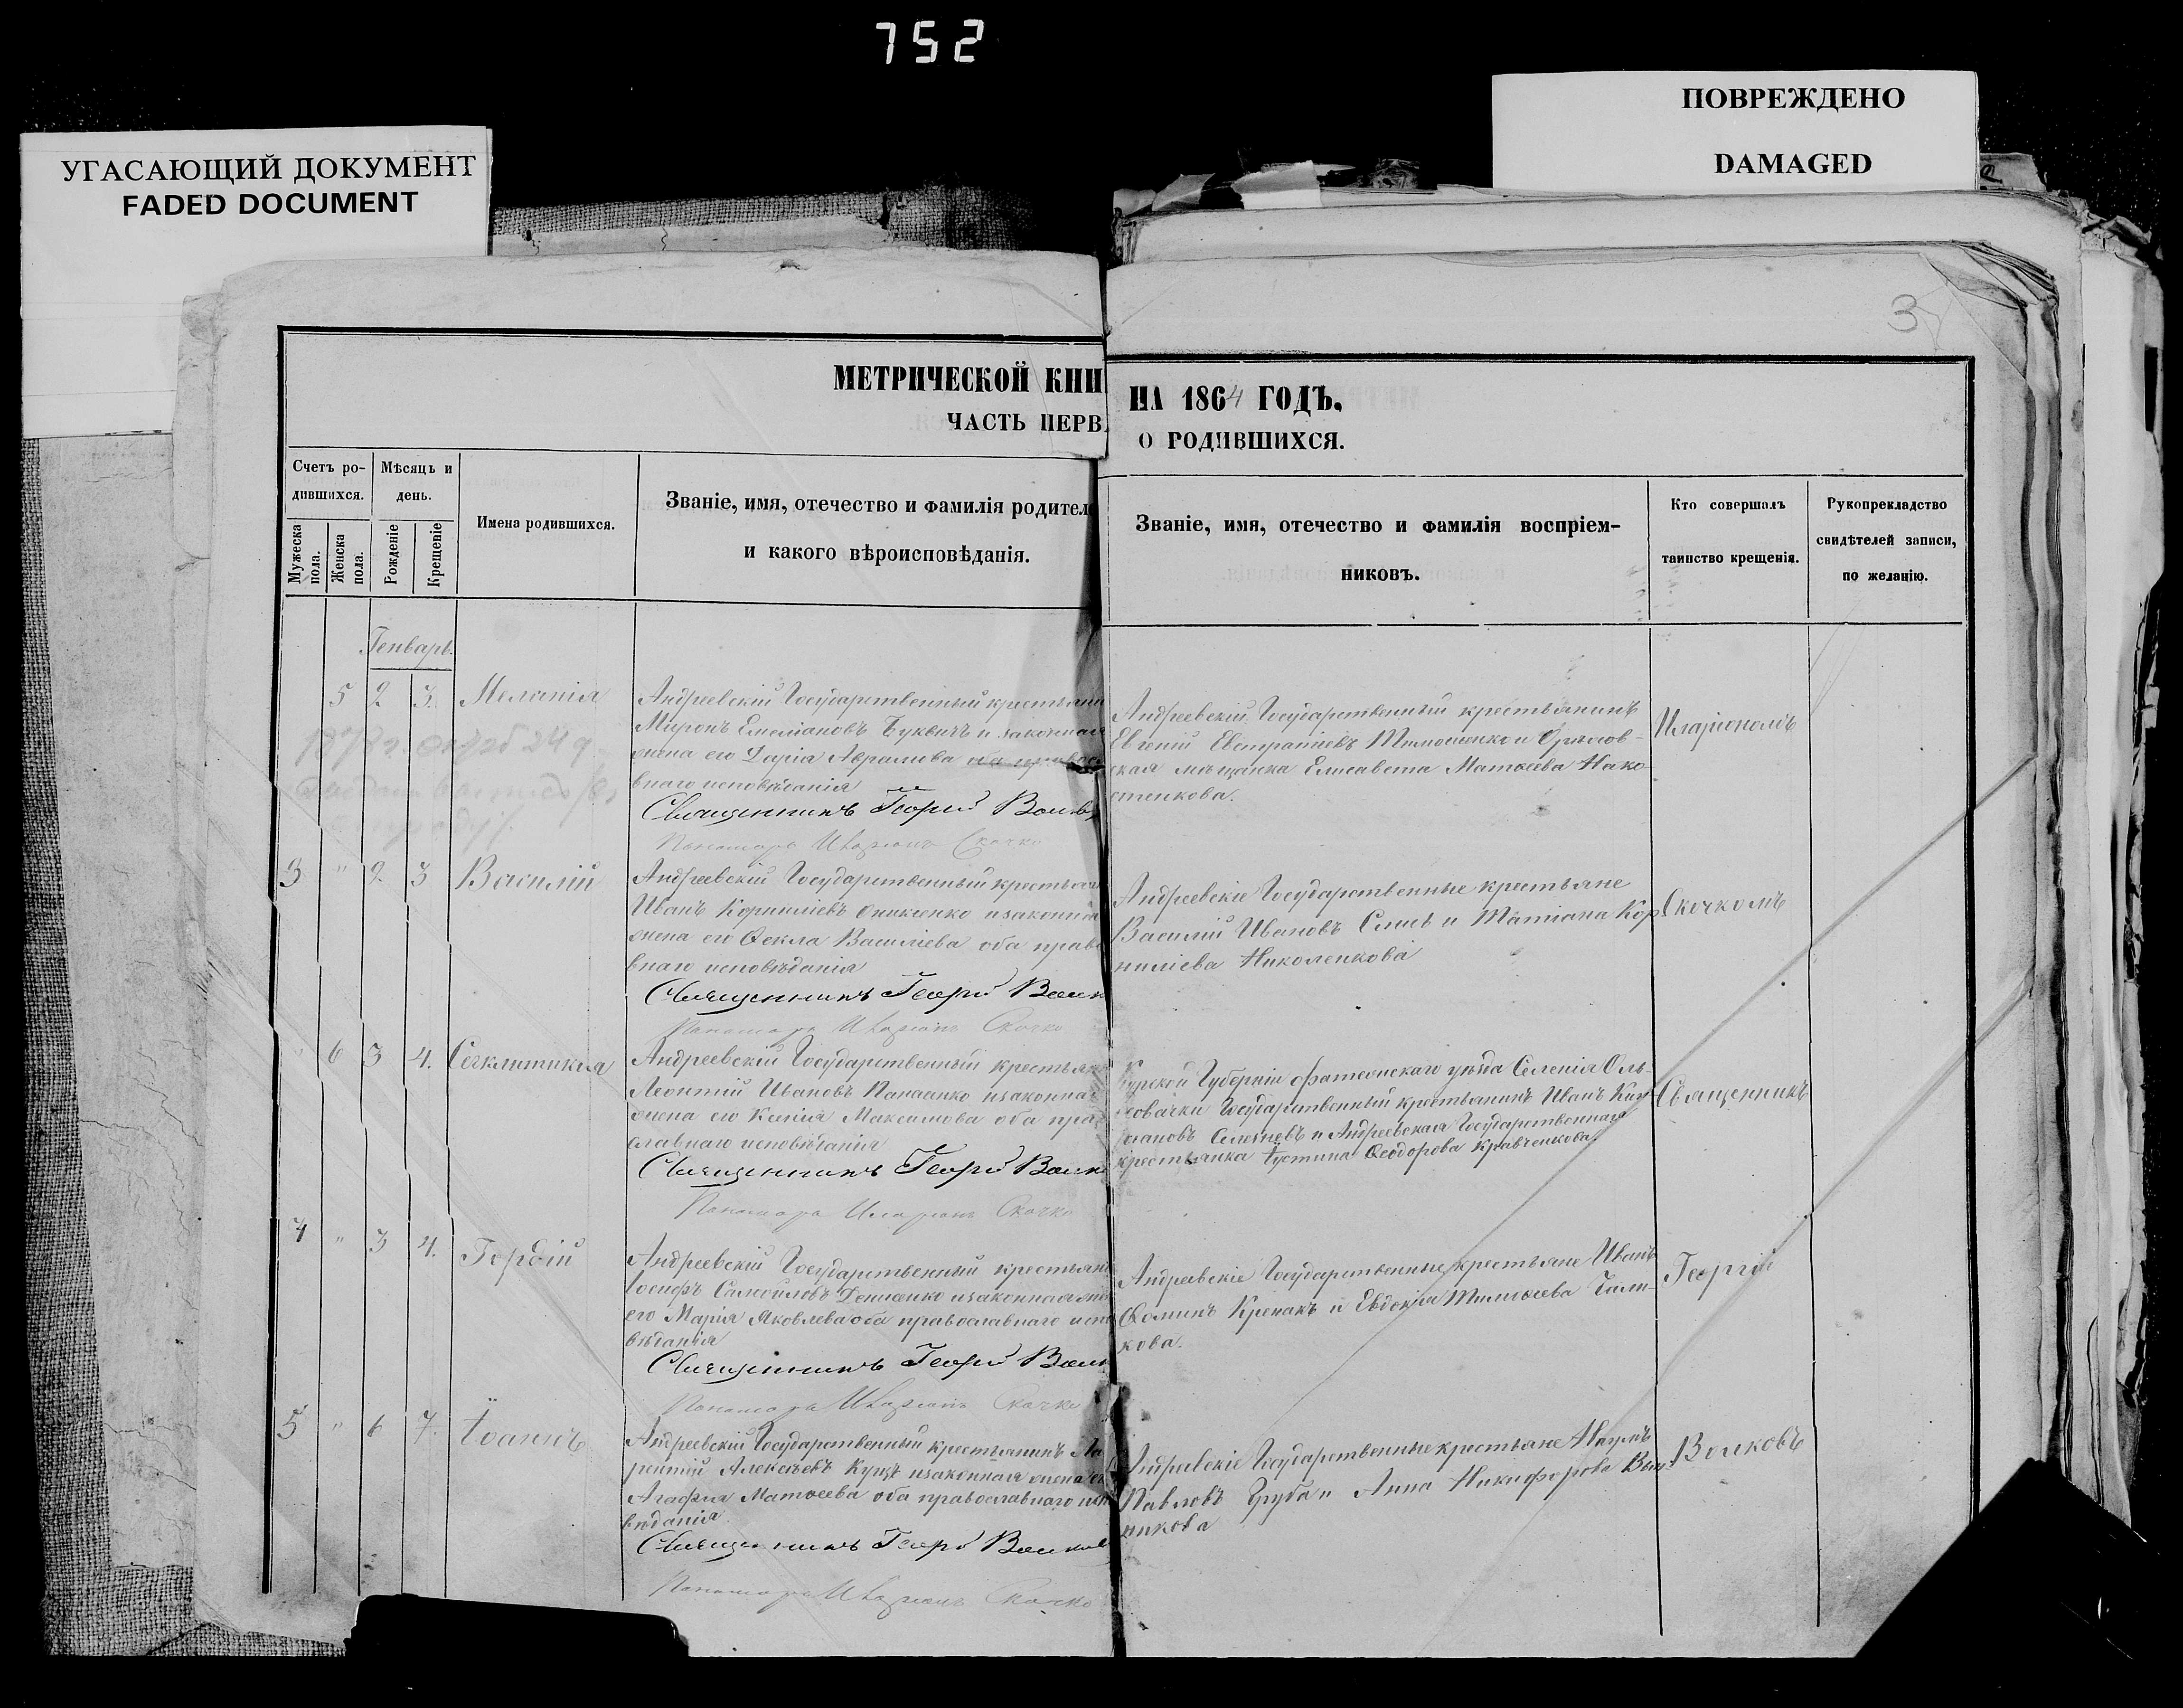 752
УГАСАЮЩИЙ ДОКУМЕНТ
FADED DOCUMENT
ПОВРЕЖДЕНО
DAMAGED
3
МЕТРИЧЕСКОЙ КНИ
ЧАСТЬ ПЕРВ
Счетъ ро-
дившихся.
Мужеска пола.
Женска пола.
Мѣсяцъ и
день.
Рожденіе
Крещеніе
Имена родившихся.
Званіе, имя, отечество и фамилія родител
и какого вѣроисповѣданія.
НА 1864 ГОДЪ.
О РОДИВШИХСЯ.
Званіе, имя, отечество и фамилія воспріем-
никовъ.
Кто совершалъ
таинство крещенія.
Рукоприкладство
свидѣтелей записи,
по желанію.
Генварь.
5 2 3. Меланія
Андреевскій Государственный крестьянин
Миронъ Емеліановъ Буквичъ и законная
жена его Дарія Авраамова оба правос
внаго исповѣданія
Священникъ Георгій Волков
Пономарь Иларіонъ Скочко
Андреевскій Государственный крестьянинъ
Евгеній Евстратіевъ Тимошенко и
ская мѣщанка Елисавета Матѳеева Нако
стенкова.
Иларіономъ
3 " 2 3 Василій
Андреевскій Государственный крестьян
Иванъ Корниліевъ Оникіенко и законная
жена его Ѳекла Василіева оба прав
внаго исповѣданія
Священникъ Георгій Волк
Пономарь Иларіонъ Скочко
Андреевскіе Государственные крестьяне
Василій Ивановъ и Татіана Кор
ниліева Николенкова
Скочкомъ
" 6 3 4. Сгклитикія
Андреевскій Государственный крестьян
Леонтій Ивановъ Панасенко и законная
жена его Ксенія Максимова оба пра
славнаго исповѣданія
Священникъ Георгій Волк
Пономарь Иларіонъ Скочко
Курской Губерніи Фатежскаго уѣзда Селенія Оль-
ховатки Государственный крестьянинъ Иванъ
Селезневъ и Андреевская Государственная
крестьянка Іустина Ѳеодорова Кравченкова.
Священникъ
4 " 3 4. Гордій
Андреевскій Государственный крестьян
Іосифъ Самойловъ Денисенко и законная жен
его Марія Яковлева оба православнаго испо
вѣданія
Священникъ Георгій Волк
Пономарь Иларіонъ Скочко
Андреевскіе Государственные крестьяне Иванъ
Ѳоминъ Крепакъ и Евдокія Тимоѳеева Гали-
кова.
Георгій
5 " 6 7. Іоаннъ
Андреевскій Государственный крестьянинъ Ла
рентій Алексѣевъ Куцъ и законная жена ег
Агафія Матѳеева оба православнаго исп
вѣданія
Священникъ Георгій Волков
Пономарь Иларіонъ Скочко
Андреевскіе Государственные крестьяне Наумъ
Павловъ Груба и Анна Никифорова
никова
Волковъ